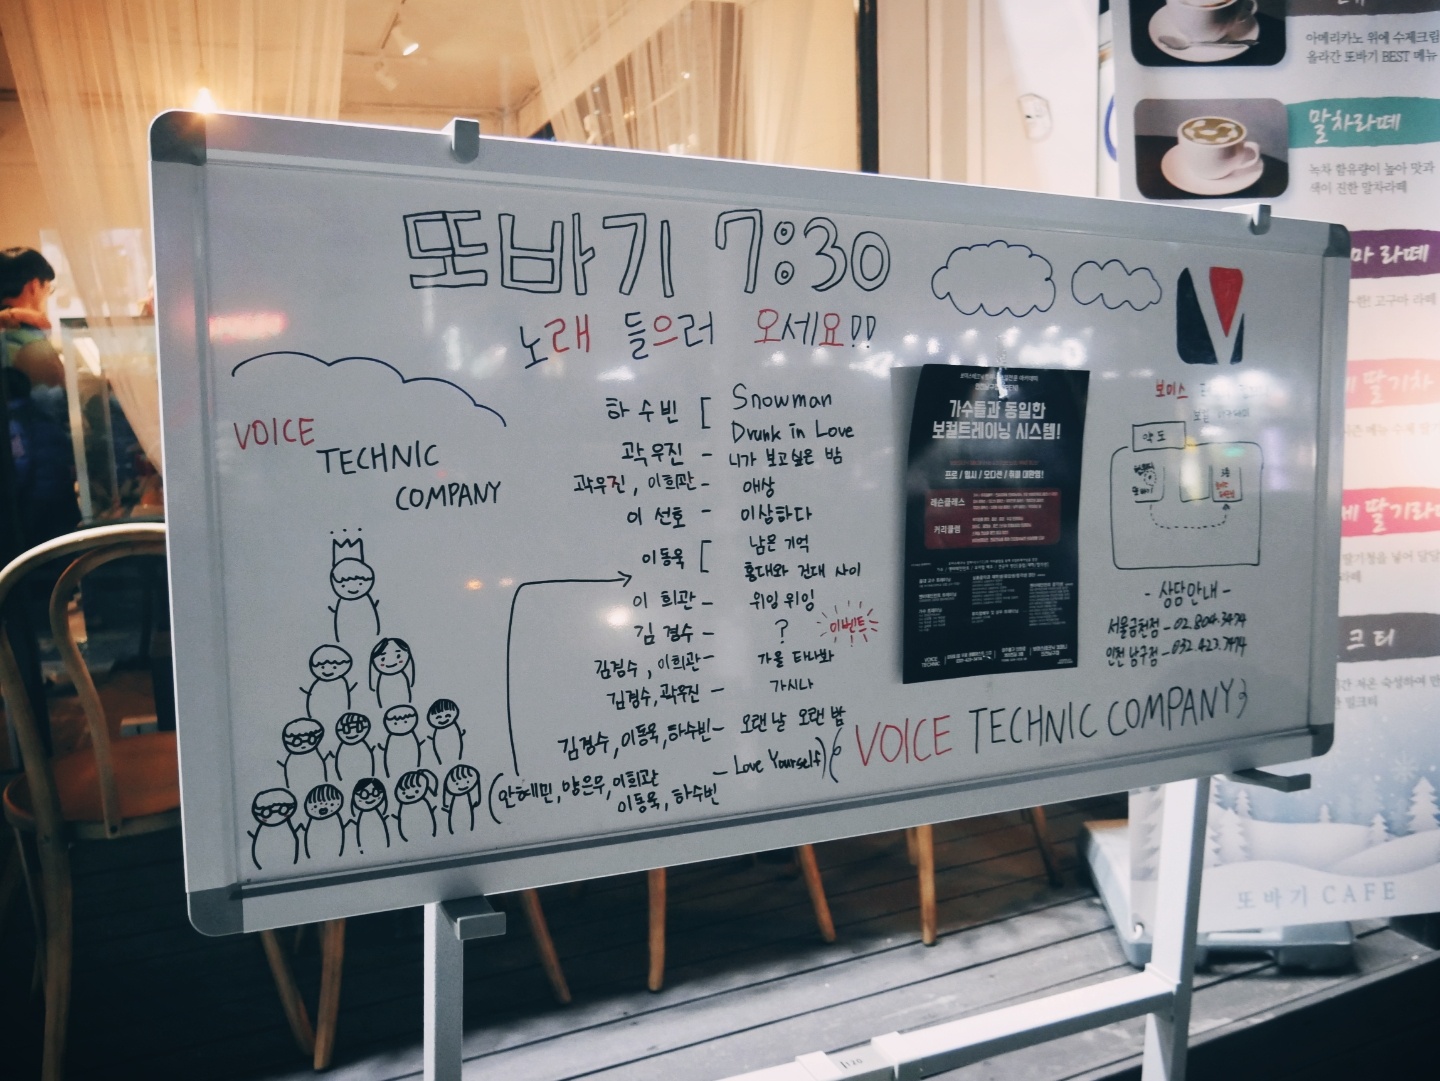 또바기 7:30
노래 들으러 오세요!!
VOICE
TECHNIC
COMPANY
하수빈 [ Snowman
Drunk in Love
곽우진 - 니가 보고싶은 밤
곽우진, 이희관 - 애상
이선호 - 이상하다
이동욱 [ 남은 기억
홍대와 건대 사이
이희관 - 위잉위잉
김경수 - ? 이벤트
김경수, 이희관 - 가을 타나봐
김경수, 곽우진 - 가시나
김경수, 이동욱, 하수빈 - 오랜 날 오랜 밤
(안혜민, 양은우, 이희관
이동욱, 하수빈 - Love Yourself)
가수들과 동일한
보컬트레이닝 시스템!
프로 / 입시 / 오디션 / 취미 대환영!
레슨클래스
커리큘럼
VOICE
TECHNIC
보이스
약도
- 상담안내 -
서울금천점 - 02.804.3474
인천 남구점 - 032.423.7474
VOICE TECHNIC COMPANY
아메리카노 위에 수제크림
올라간 또바기 BEST 메뉴
말차라떼
녹차 함유량이 높아 맛과
색이 진한 말차라떼
마 라떼
고구마 라떼
딸기차
딸기라떼
크티
또바기 CAFE